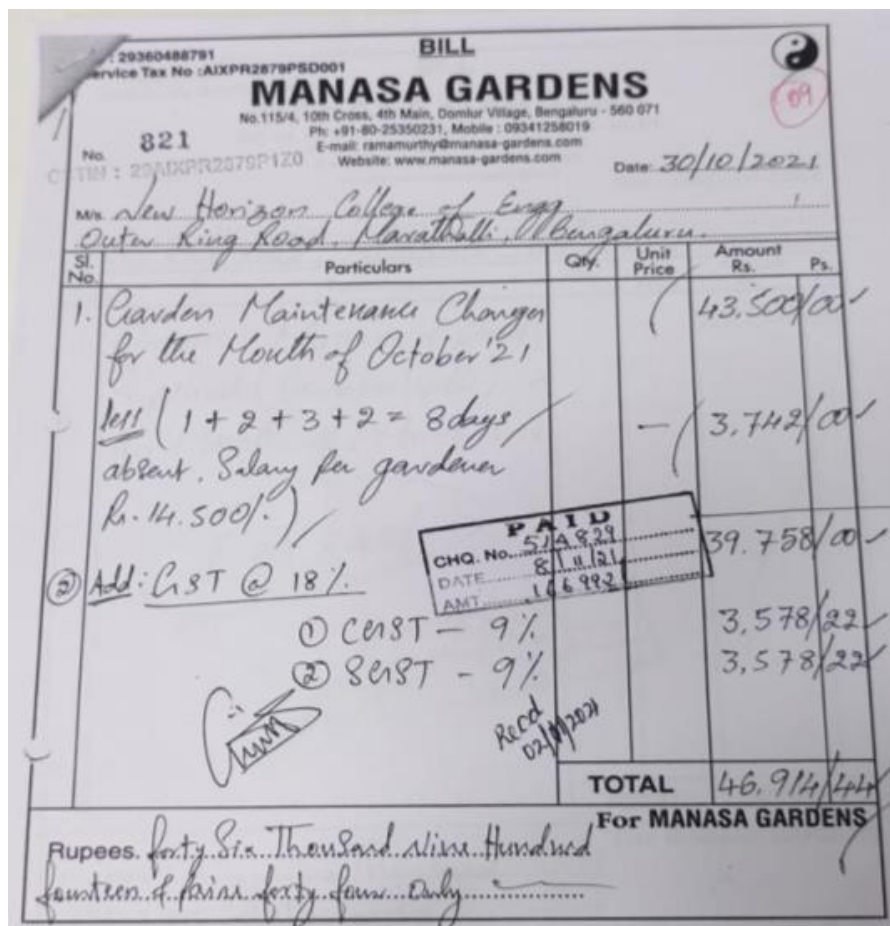 BILL
: 29360488791
ervice Tax No :AIXPR2879PSD001
MANASA GARDENS
09
No.115/4, 10th Cross, 4th Main, Domlur Village, Bengaluru - 560 071
Ph: +91-80-25350231, Mobile : 09341258019
E-mail: ramamurthy@manasa-gardens.com
Website: www.manasa-gardens.com
No. 821
GSTIN : 29AIXPR2879P1Z0
Date: 30/10/2021
M/s. New Horizon College of Engg
Outer Ring Road, Marathalli, Bengaluru.
Sl. No. Particulars Qty. Unit Price Amount Rs. Ps.
1. Garden Maintenance Charges 43.500/00
for the Month of October '21
less (1 + 2 + 3 + 2 = 8 days - 3.742/00
absent. Salary per gardener
Rs. 14.500/.)
39.758/00
PAID
CHQ. No. 514829
DATE 8/11/21
AMT. 166992
② Add: GST @ 18%.
① CGST - 9% 3,578/22
② SGST - 9% 3,578/22
Recd
02/11/2021
TOTAL 46.914/44
For MANASA GARDENS
Rupees. forty Six Thousand Nine Hundred
fourteen & paise forty four only